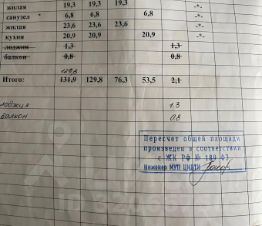 жилая 19,3 19,3 19,3 -"-
санузел 6,8 6,8 6,8 -"-
жилая 23,6 23,6 23,6 -"-
кухня 20,9 20,9 20,9 -"-
лоджия 1,3 1,3
балкон 0,8 0,8
129,8
Итого: 131,9 129,8 76,3 53,5 2,1
лоджия 1.3
балкон 0,8
Пересчет общей площади
произведен в соответствии
с ЖК РФ № 189-ФЗ
Инженер МУП ЦИАТИ